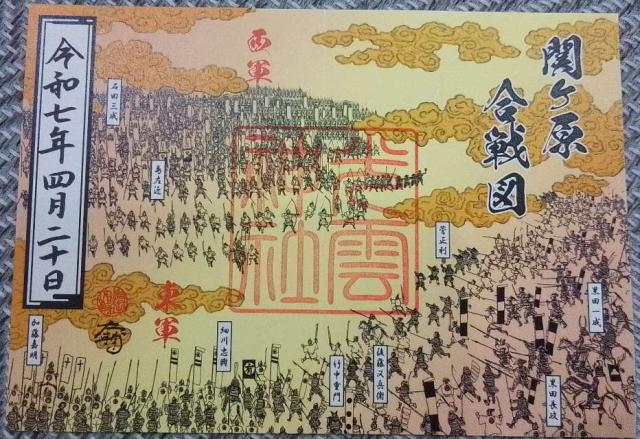 関ヶ原
合戦図
西軍
光雲
神社
令和七年四月二十日
石田三成
島左近
菅正利
黒田一成
東軍
加藤嘉明
細川忠興
竹中重門
後藤又兵衛
黒田長政